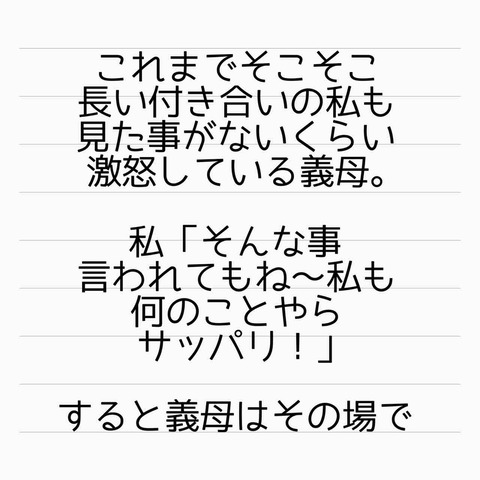 これまでそこそこ
長い付き合いの私も
見た事がないくらい
激怒している義母。
私「そんな事
言われてもね〜私も
何のことやら
サッパリ！」
すると義母はその場で